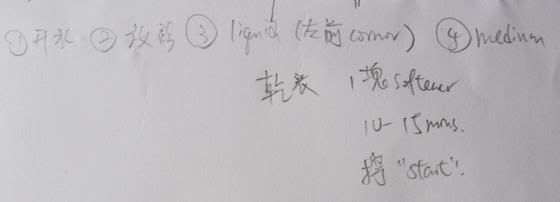 ① 开水 ② 放衫 ③ liquid (左前 corner) ④ medium
乾衣 1塊 softener
10-15 mins.
擰 "start".